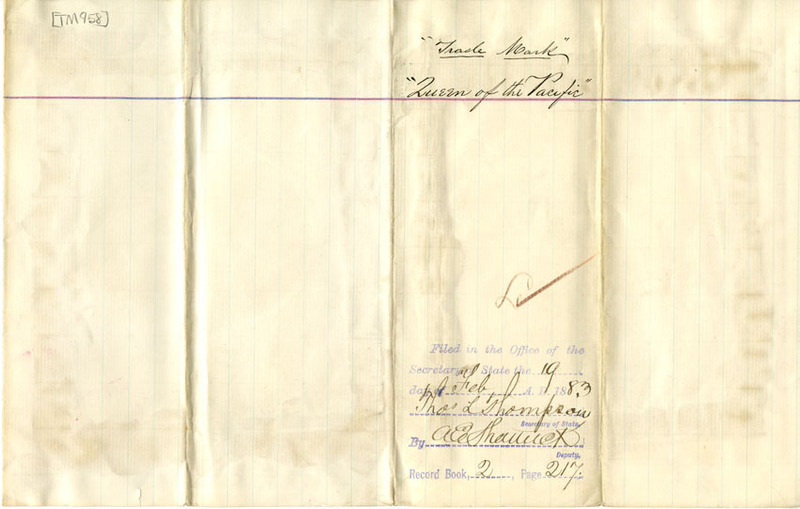 [TM958]
"Trade Mark"
"Queen of the Pacific"
Filed in the Office of the
Secretary of State the 19
day of Feb, A. D. 1883
Thos L Thompson
Secretary of State.
By
Deputy,
Record Book, 2, Page 217.